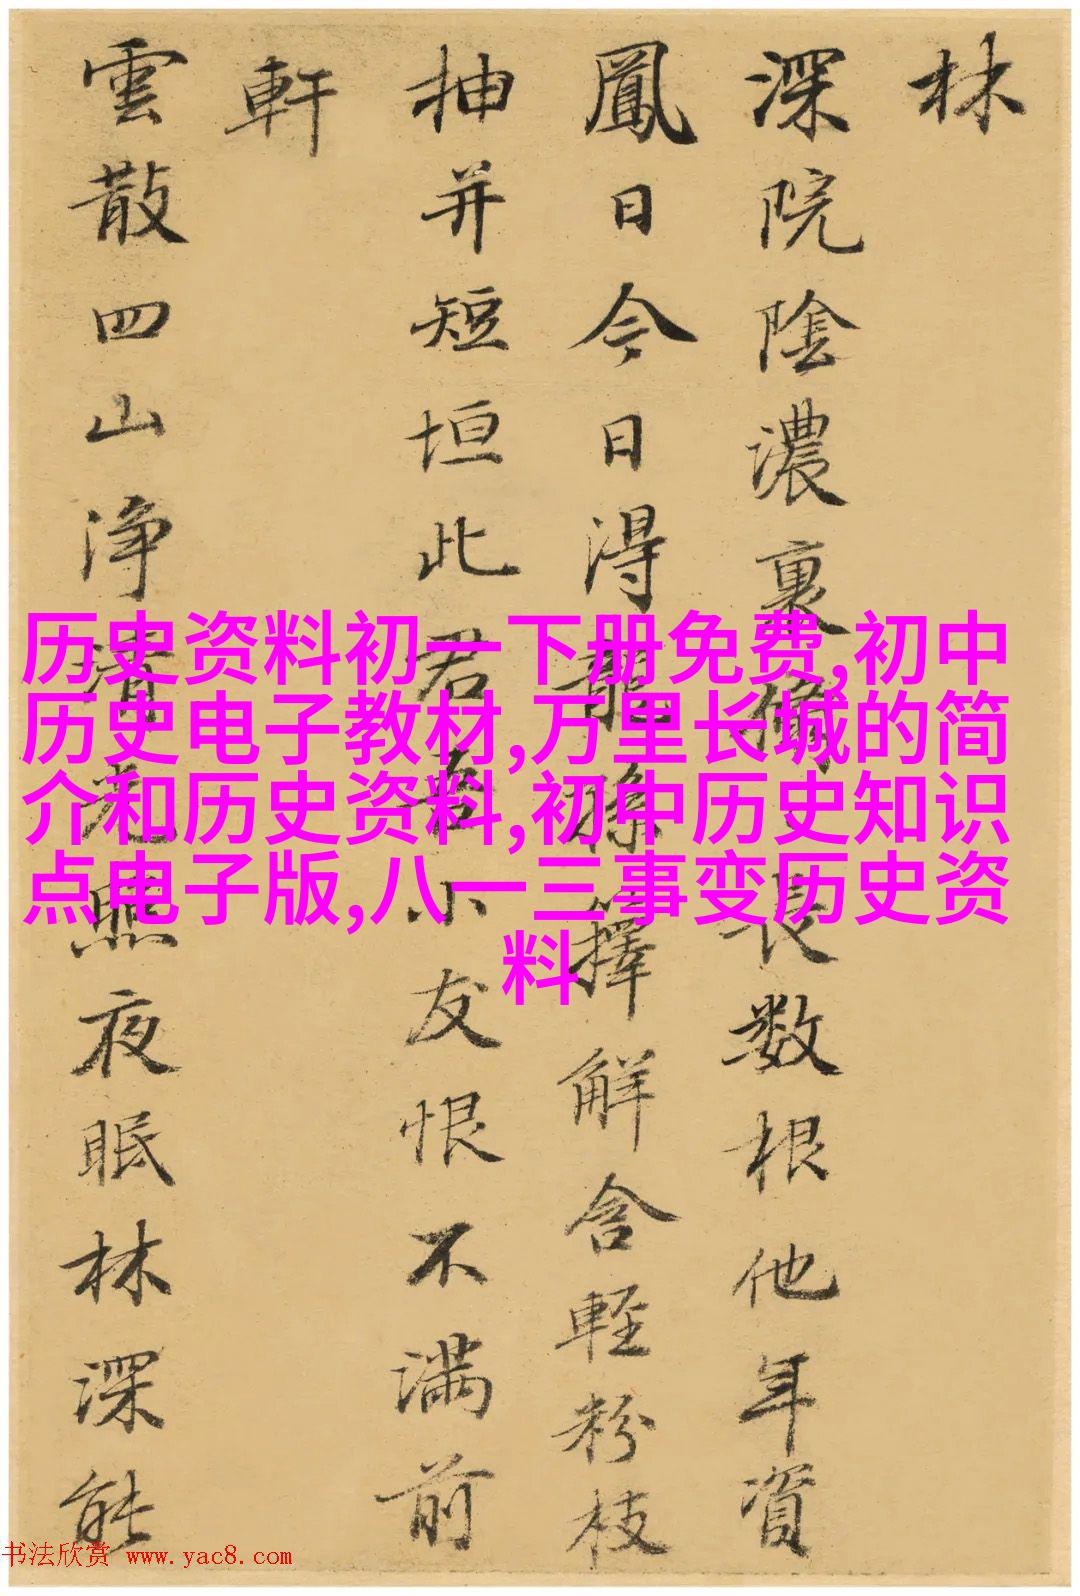 林
深院陰濃裏脩長数根他年資
鳳日今日得龍孫擇解含輕粉枝
抽并短垣此君吾小友恨不満前
軒
雲散四山净清光照夜眠林深能
历史资料初一下册免费,初中
历史电子教材,万里长城的简
介和历史资料,初中历史知识
点电子版,八一三事变历史资
料
书法欣赏 www.yac8.com